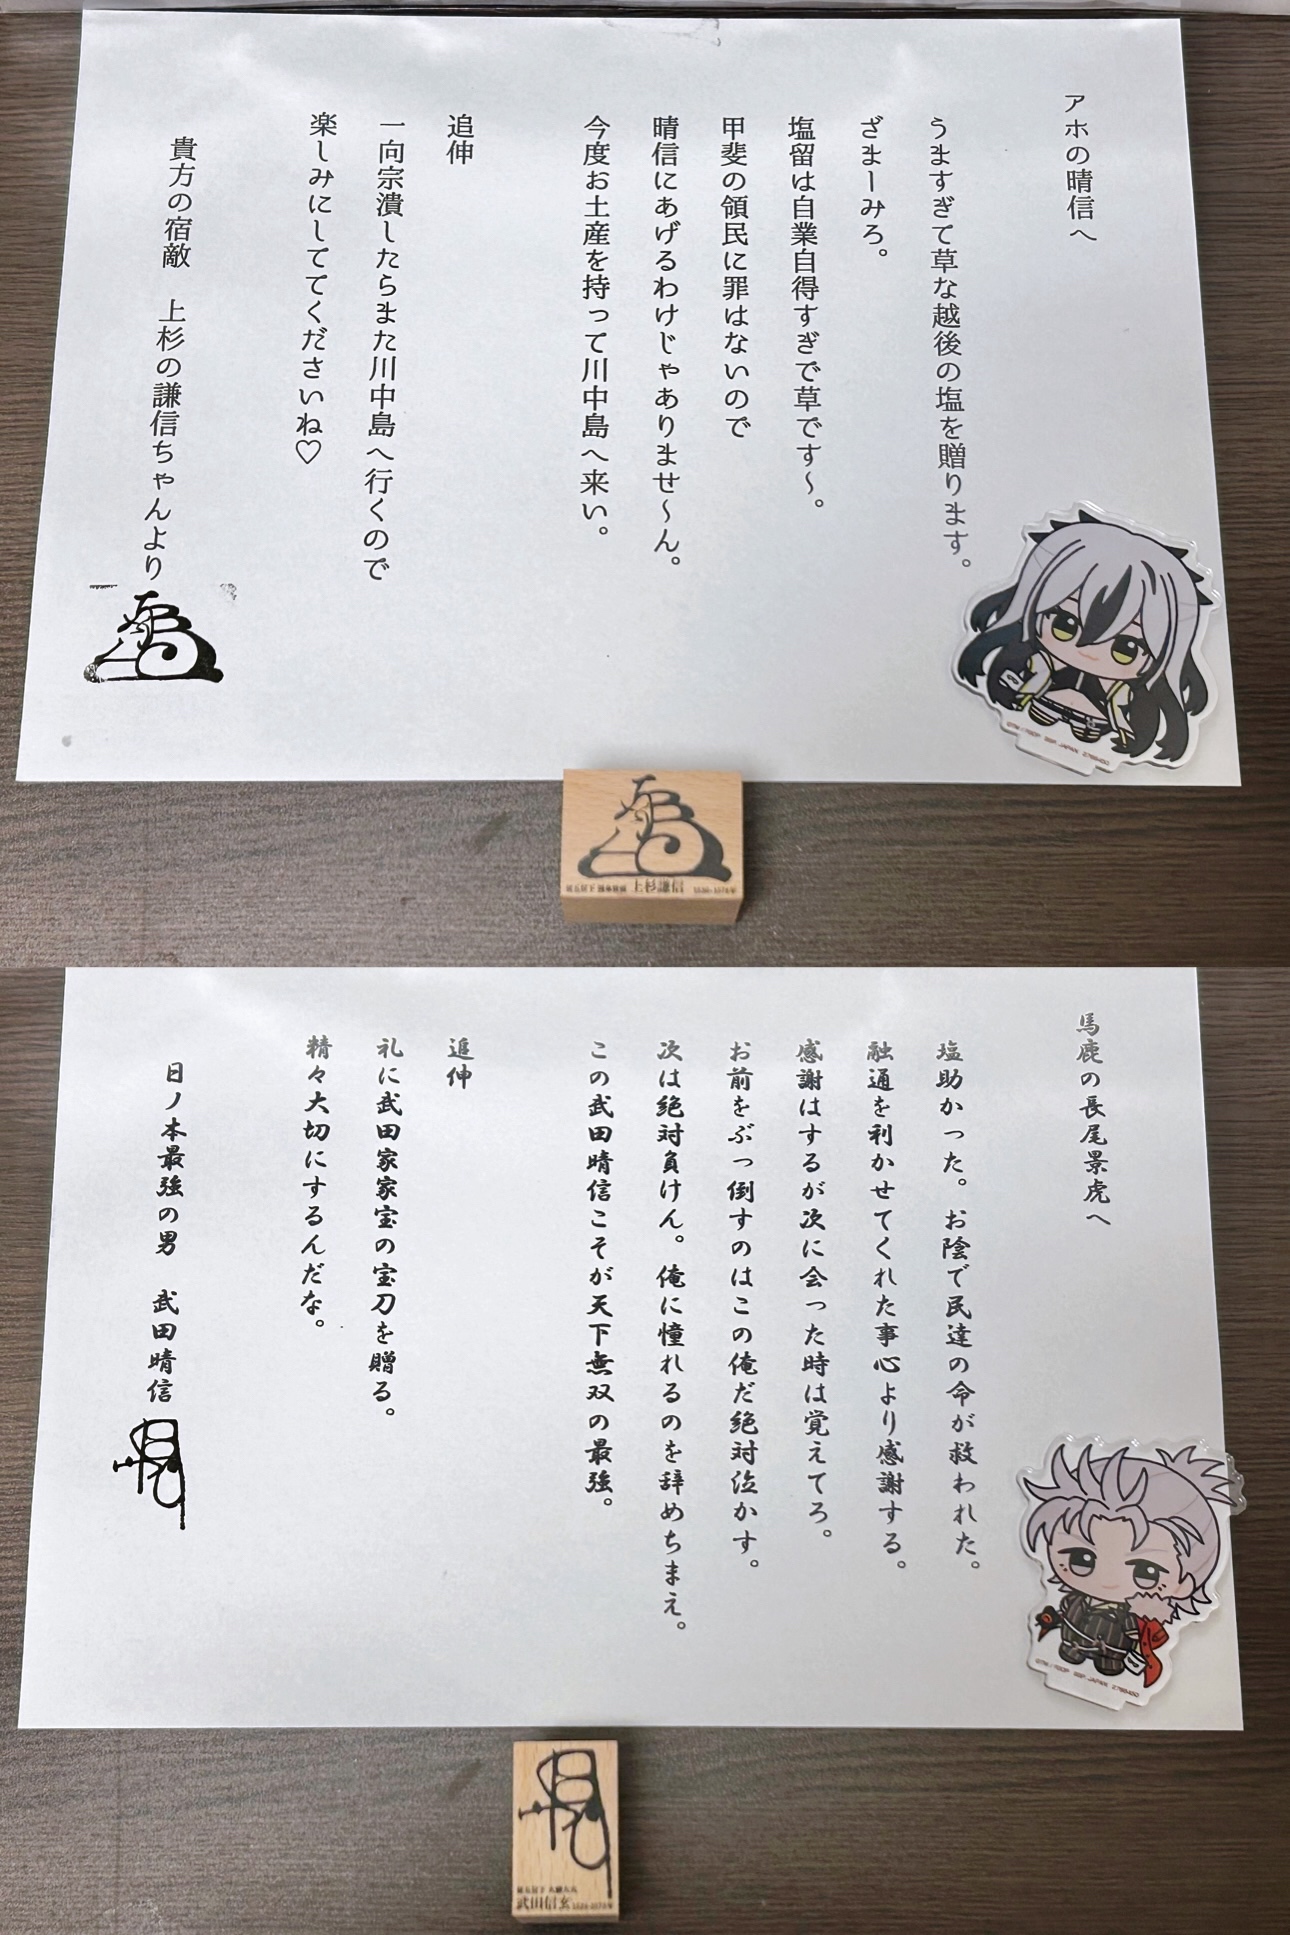 アホの晴信へ
うますぎて草な越後の塩を贈ります。
ざまーみろ。
塩留は自業自得すぎで草です～。
甲斐の領民に罪はないので
晴信にあげるわけじゃありませ～ん。
今度お土産を持って川中島へ来い。
追伸
一向宗潰したらまた川中島へ行くので
楽しみにしててくださいね♡
貴方の宿敵　上杉の謙信ちゃんより
馬鹿の長尾景虎へ
塩助かった。お陰で民達の命が救われた。
融通を利かせてくれた事心より感謝する。
感謝はするが次に会った時は覚えてろ。
お前をぶっ倒すのはこの俺だ絶対泣かす。
次は絶対負けん。俺に憧れるのを辞めちまえ。
この武田晴信こそが天下無双の最強。
追伸
礼に武田家家宝の宝刀を贈る。
精々大切にするんだな。
日ノ本最強の男　武田晴信
武田信玄